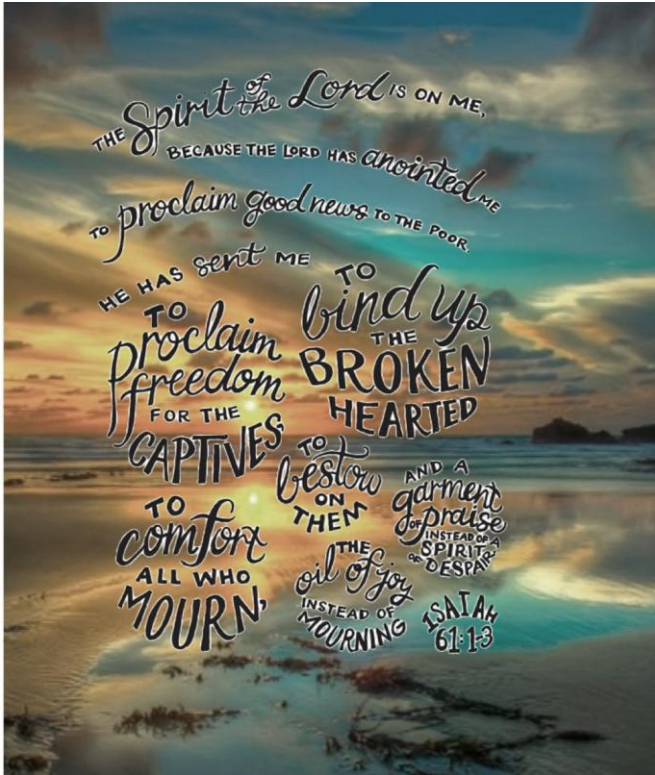 THE Spirit of the Lord IS ON ME,
BECAUSE THE LORD HAS anointed ME
TO proclaim good news TO THE POOR.
HE HAS sent ME
TO
bind up
THE
BROKEN
HEARTED
TO
proclaim
freedom
FOR THE
CAPTIVES
TO
comfort
ALL WHO
MOURN,
TO
bestow
ON
THEM
THE
oil of joy
INSTEAD OF
MOURNING
AND A
garment
OF praise
INSTEAD OF A
SPIRIT
OF DESPAIR
ISAIAH
61:1-3